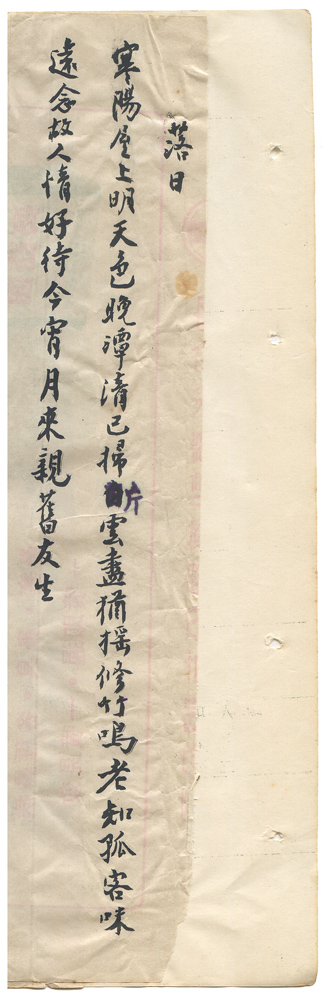 落日
寒陽屋上明天色晚潭清已掃片雲盡猶搖修竹鳴老知孤客味
遠念故人情好待今宵月來親舊友生